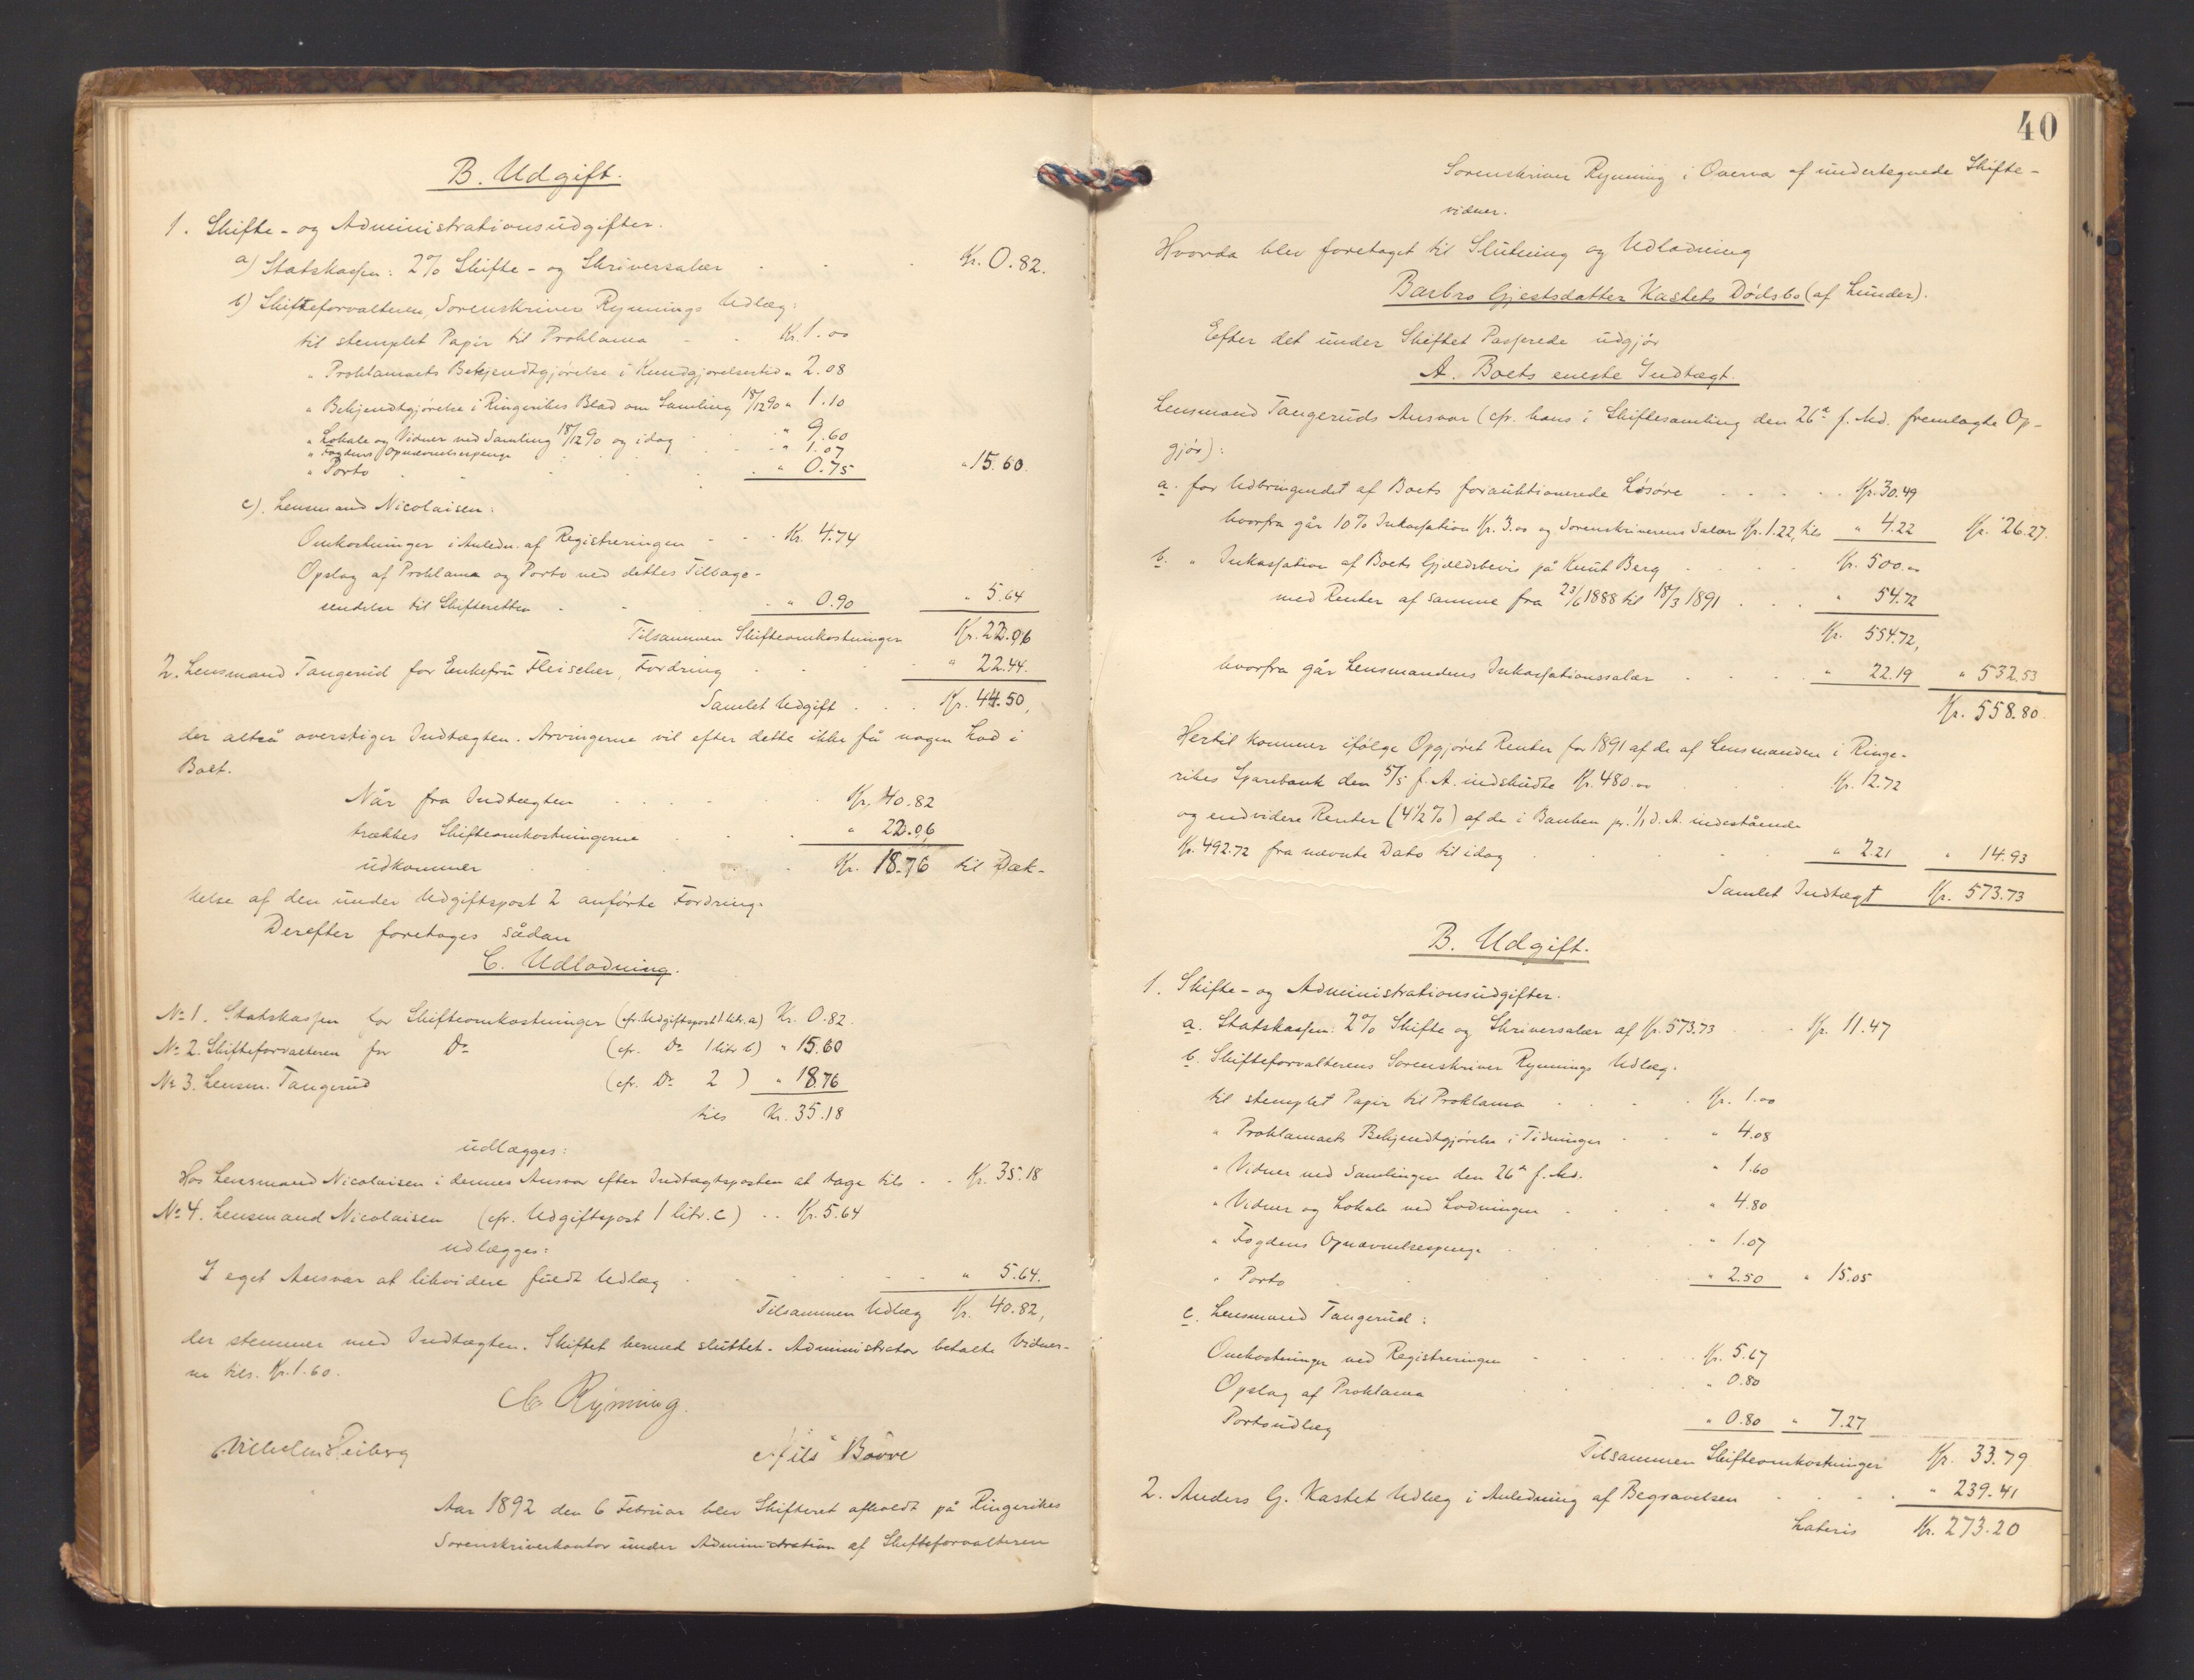 B. Udgift.
1. Skifte- og Administrationsudgifter.
a) Statskassen: 2% Skifte- og Skriversalær . . . Kr. 0.82.
b) Skifteforvalteren, Sorenskriver Rynnings Udlæg:
til stemplet Papir til Proklama - - Kr. 1.00
" Proklamaets Bekjendtgjørelse i Kundgjørelsestid. " 2.08
" Bekjendtgjørelse i Ringerikes Blad om Samling 18/12 90 " 1.10
" Lokale og Vidner ved Samling 18/12 90 og idag . . " 9.60
" Fogdens Opnævnelsespenge . . " 1.07
" Porto . . . . " 0.75 " 15.60
c). Lensmand Nicolaisen:
Omkostninger i Anledn. af Registreringen - - - Kr. 4.74
Opslag af Proklama og Porto ved dettes Tilbage-
sendelse til Skifteretten . . " 0.90 " 5.64
Tilsammen Skifteomkostninger Kr. 22.06
2. Lensmand Tangerud for Enkefru Fleischer, Fordring . . . " 22.44.
Samlet Udgift . . . Kr. 44.50,
der altså overstiger Indtægten. Arvingerne vil efter dette ikke få nogen Lod i
Boet.
Når fra Indtægten . . . . Kr. 40.82
trækkes Skifteomkostningerne . . . " 22.06
udkommer . . . . Kr. 18.76 til Dæk-
kelse af den under Udgiftspost 2 anførte Fordring.
Derefter foretages sådan
C. Udlodning.
No 1. Statskassen for Skifteomkostninger (cfr. Udgiftspost 1 litr. a) Kr. 0.82.
No 2. Skifteforvalteren for Do (cfr. Do 1 litr b) " 15.60
No 3. Lensm. Tangerud (cfr. Do 2 ) " 18.76
tils Kr. 35.18
udlægges:
Hos Lensmand Nicolaisen i dennes Ansvar efter Indtægtsposten at tage tils - - Kr. 35.18
No 4. Lensmand Nicolaisen (cfr. Udgiftspost 1 litr. c) . . Kr. 5.64
udlægges:
I eget Ansvar at likvidere fuldt Udlæg . . . . . " 5.64.
Tilsammen Udlæg Kr. 40.82,
der stemmer med Indtægten. Skiftet hermed sluttet. Administrator betalte Vidner-
ne tils. Kr. 1.60.
C. Rynning.
Vilhelm Heiberg Nils Boore
Aar 1892 den 6 Februar blev Skifteret afholdt på Ringerikes
Sorenskriverkontor under Administration af Skifteforvalteren
40
Sorenskriver Rynning i Overvær af undertegnede Skifte-
vidner.
Hvorda blev foretaget til Slutning og Udlodning
Barbro Gjestsdatter Kastets Dødsbo (af Lunder).
Efter det under Skiftet Passerede udgjør
A. Boets eneste Indtægt.
Lensmand Tangeruds Ansvar (cfr. hans i Skiftesamling den 26de f. Md. fremlagte Op-
gjør):
a. for Udbringendet af Boets forauktionerede Løsøre . . . . . Kr. 30.49
hvorfra går 10% Inkassation Kr. 3.00 og Sorenskriverens Salær Kr. 1.22, tils " 4.22 Kr. 26.27.
b. " Inkassation af Boets Gjældsbevis på Knut Berg . . . . Kr. 500.00
med Renter af samme fra 23/6 1888 til 18/3 1891 . . . " 54.72
Kr. 554.72,
hvorfra går Lensmandens Inkassationssalær . . . . " 22.19 " 532.53
Kr. 558.80.
Hertil kommer ifølge Opgjøret Renter for 1891 af de af Lensmanden i Ringe-
rikes Sparebank den 5/5 f. A. indskudte Kr. 480.00 . . Kr. 12.72
og endvidere Renter (4 1/2 %) af de i Banken pr. 1/1 d. A. indestående
Kr. 492.72 fra nævnte Dato til idag . . . . . " 2.21 " 14.93
Samlet Indtægt Kr. 573.73
B. Udgift.
1. Skifte- og Administrationsudgifter.
a. Statskassen: 2% Skifte og Skriversalær af Kr. 573.73 . . - Kr. 11.47
b. Skifteforvalterens Sorenskriver Rynnings Udlæg.
til stemplet Papir til Proklama . . . . Kr. 1.00
" Proklamaets Bekjendtgjørelse i Tidninger . . " 4.08
" Vidner ved Samlingen den 26de f. Md. . " 1.60
" Vidner og Lokale ved Lodningen . . . " 4.80
" Fogdens Opnævnelsespenge . . . . " 1.07
" Porto . . . . " 2.50 " 15.05
c. Lensmand Tangerud:
Omkostninger ved Registreringen . . . . Kr. 5.67
Opslag af Proklama . . . " 0.80
Portoudlæg " 0.80 " 7.27
Tilsammen Skifteomkostninger Kr. 33.79
2. Anders G. Kastet Udlæg i Anledning af Begravelsen . . . . " 239.41
Lateris Kr. 273.20